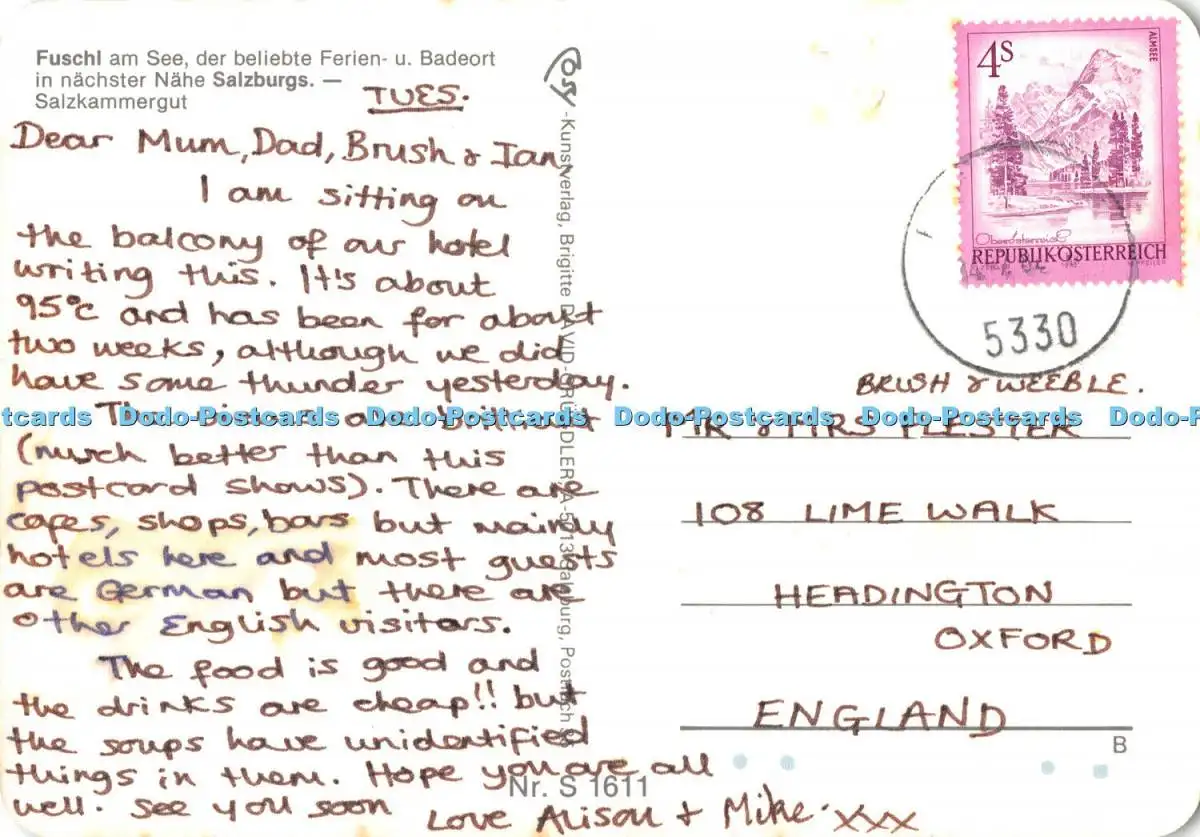 Fuschl am See, der beliebte Ferien- u. Badeort
in nächster Nähe Salzburgs. —
Salzkammergut
TUES.
Dear Mum, Dad, Brush & Ian,
I am sitting on
the balcony of our hotel
writing this. It's about
95°c and has been for about
two weeks, although we did
have some thunder yesterday.
The views are brilliant
(much better than this
postcard shows). There are
cafes, shops, bars but mainly
hotels here and most guests
are German but there are
other English visitors.
The food is good and
the drinks are cheap!! but
the soups have unidentified
things in them. Hope you are all
well. See you soon
Love Alison + Mike. xxx
Nr. S 1611
-Kunstverlag, Brigitte DAVID-GRÜNDLER, A-5013 Salzburg, Postfach
4s
ALMSEE
Oberösterreich
REPUBLIK ÖSTERREICH
5330
BRUSH & WEEBLE.
MR & MRS PLESTER
108 LIME WALK
HEADINGTON
OXFORD
ENGLAND
B
Dodo-Postcards Dodo-Postcards Dodo-Postcards Dodo-Postcards Dodo-Postcards